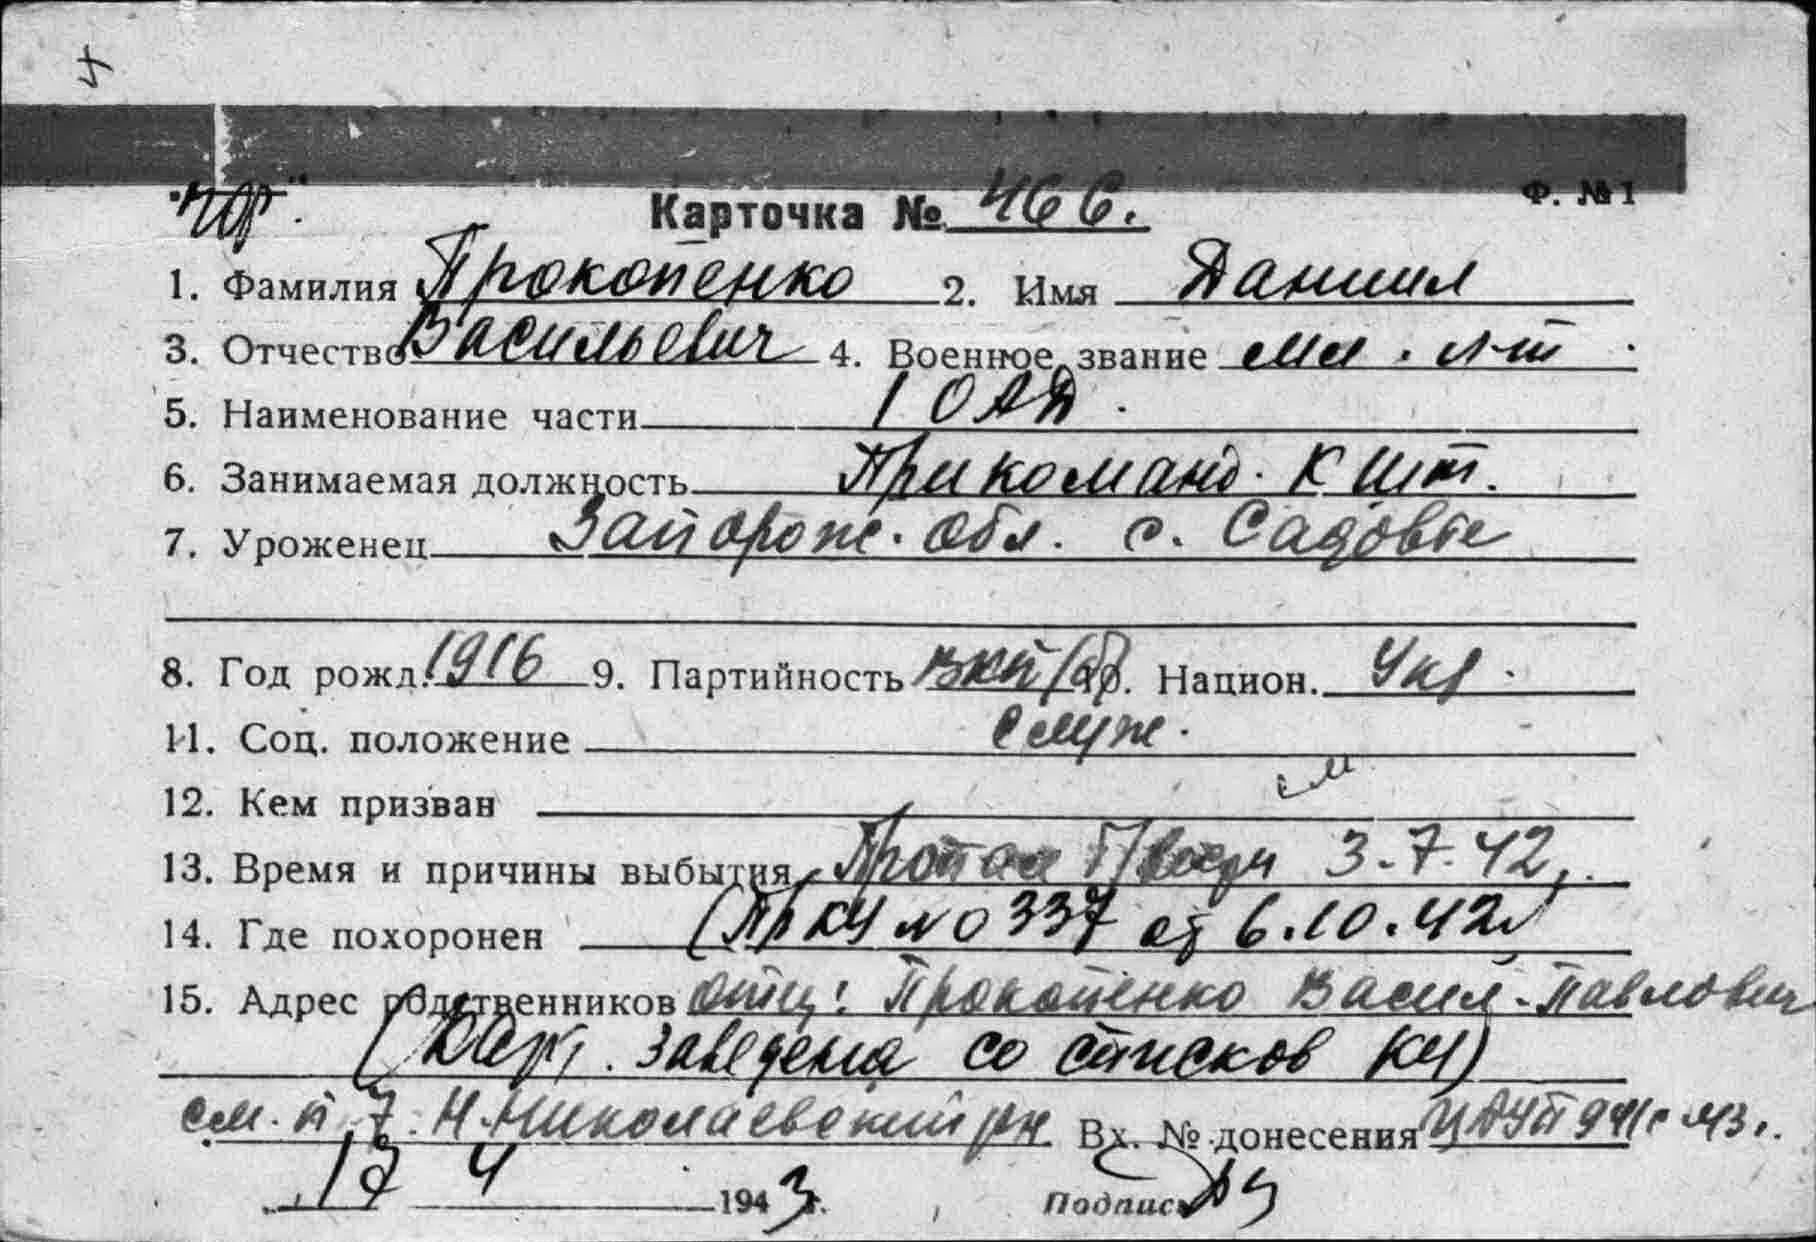 Ф. №1
Карточка № 466.
1. Фамилия Прокопенко 2. Имя Даниил
3. Отчество Васильевич 4. Военное звание мл. л-т.
5. Наименование части 1 ОАД.
6. Занимаемая должность Прикоманд. К шт.
7. Уроженец Запорож. обл. с. Садовые
8. Год рожд. 1916 9. Партийность ВКП(б) 10. Национ. Укр.
11. Соц. положение служ.
12. Кем призван
13. Время и причины выбытия Пропал 3.7.42
14. Где похоронен (Пр КЧ № 0337 от 6.10.42
15. Адрес родственников отец: Прокопенко Васил. Павлович
заведена со списков КЧ)
см. п 7. Н. Николаевский рн Вх. № донесения
4 1943 г. Подпись